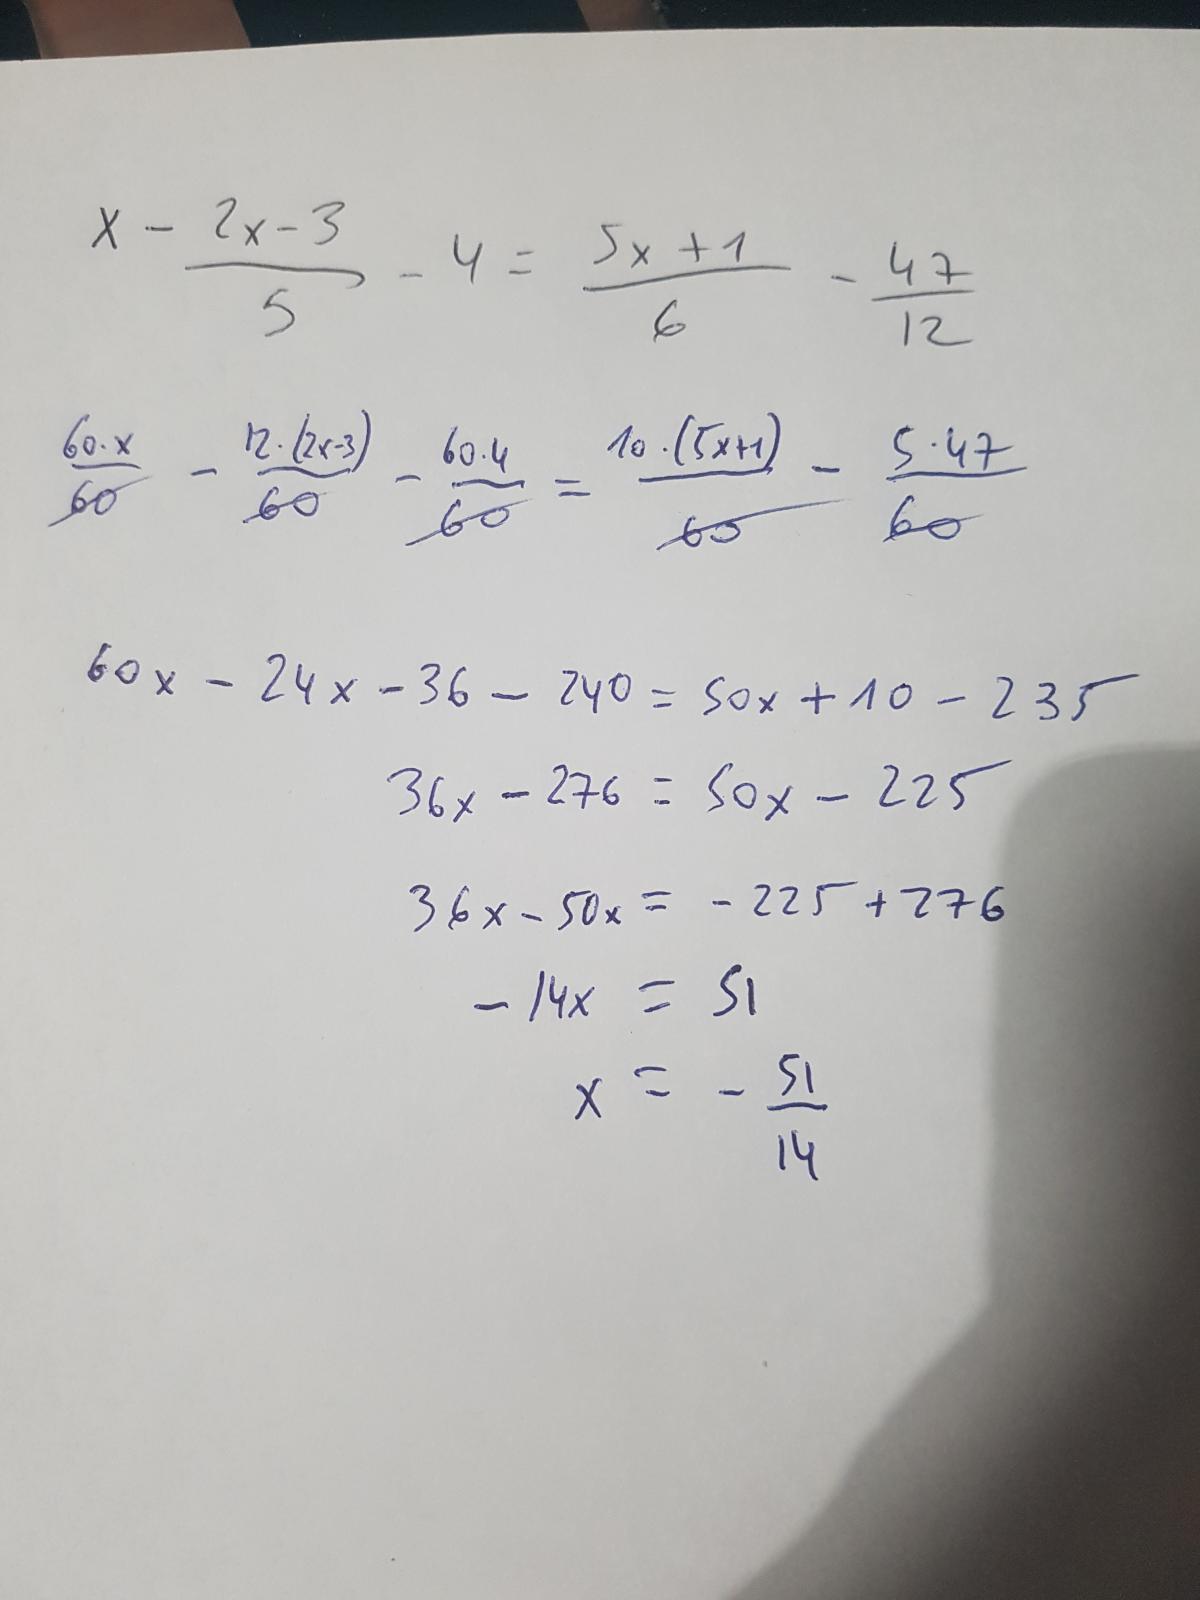 x - (2x-3)/5 - 4 = (5x+1)/6 - 47/12
60·x/60 - 12·(2x-3)/60 - 60·4/60 = 10·(5x+1)/60 - 5·47/60
60x - 24x - 36 - 240 = 50x + 10 - 235
36x - 276 = 50x - 225
36x - 50x = - 225 + 276
- 14x = 51
x = - 51/14